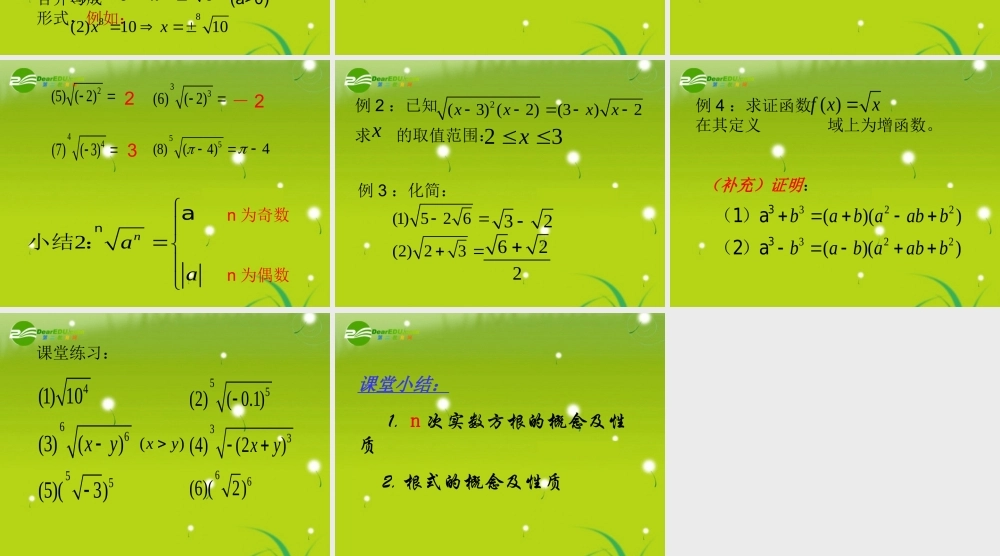 (a>0)
形式，例如:
(2)x⁸=10⇒ x=±⁸√10
DearEDU
(5) √(-2)² = 2
(6) ³√(-2)³ = －2
(7) ⁴√(-3)⁴ = 3
(8) ⁵√(π-4)⁵ = π-4
小结2: ⁿ√aⁿ =
a n 为奇数
|a| n 为偶数
DearEDU
例 2 ：已知√(x-3)²(x-2) = (3-x)√x-2
求x 的取值范围: 2 ≤ x ≤ 3
例 3 ：化简:
(1) √5-2√6 = √3 - √2
(2) √2+√3 = √6 + √2 / 2
DearEDU
例 4 ：求证函数f(x)=√x
在其定义 域上为增函数。
（补充）证明:
（1）a³+b³=(a+b)(a²-ab+b²)
（2）a³-b³=(a-b)(a²+ab+b²)
DearEDU
课堂练习:
(1) √10⁴
(2) ⁵√(-0.1)⁵
(3) ⁶√(x-y)⁶ (x>y)
(4) ³√-(2x+y)³
(5)(⁵√-3)⁵
(6)(⁶√2)⁶
DearEDU
课堂小结:
1. n 次实数方根的概念及性
质
2. 根式的概念及性质